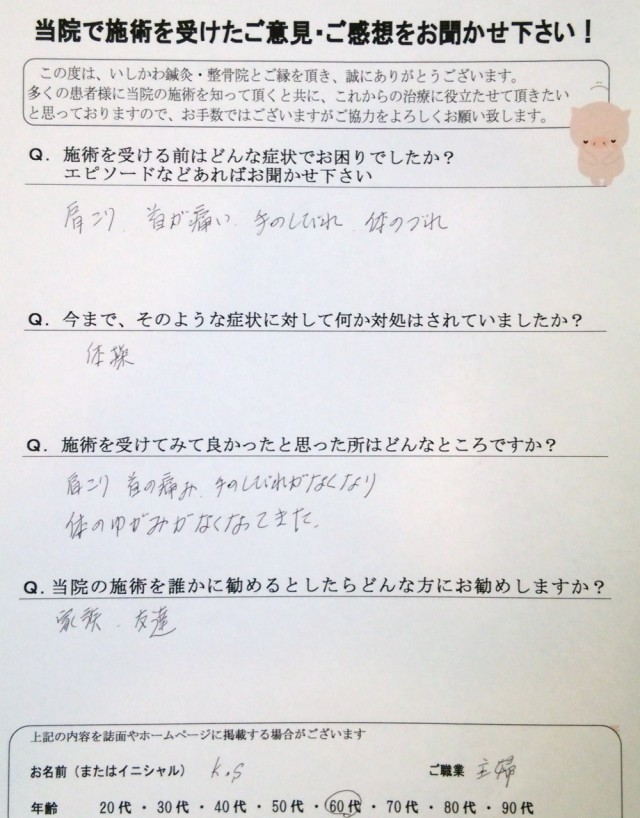 当院で施術を受けたご意見・ご感想をお聞かせ下さい！
この度は、いしかわ鍼灸・整骨院とご縁を頂き、誠にありがとうございます。
多くの患者様に当院の施術を知って頂くと共に、これからの治療に役立たせて頂きたい
と思っておりますので、お手数ではございますがご協力をよろしくお願い致します。
Q．施術を受ける前はどんな症状でお困りでしたか？
エピソードなどあればお聞かせ下さい
肩こり、首が痛い、手のしびれ、体のづれ
Q．今まで、そのような症状に対して何か対処はされていましたか？
体操
Q．施術を受けてみて良かったと思った所はどんなところですか？
肩こり 首の痛み、手のしびれがなくなり
体のゆがみがなくなってきた。
Q．当院の施術を誰かに勧めるとしたらどんな方にお勧めしますか？
家族、友達
上記の内容を誌面やホームページに掲載する場合がございます
お名前（またはイニシャル） K.S ご職業 主婦
年齢 20代・30代・40代・50代・60代・70代・80代・90代